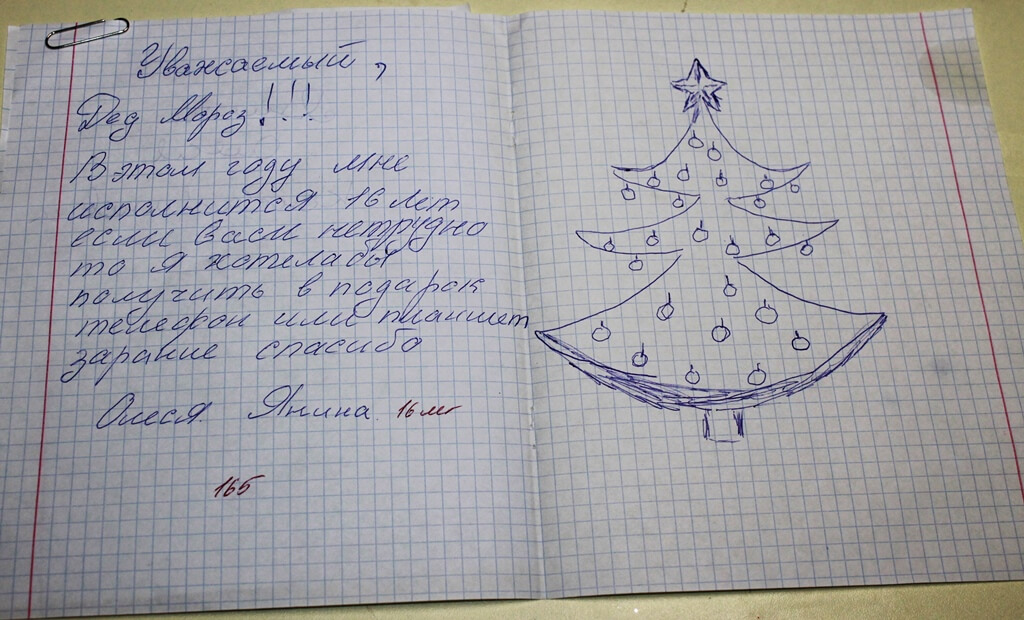 Уважаемый,
Дед Мороз!!!
В этом году мне
исполнится 16 лет
если васи нетрудно
то я хотелабы
получить в подарок
телефон или планшет
зарание спасибо
Олеся. Янина. 16 ле
165